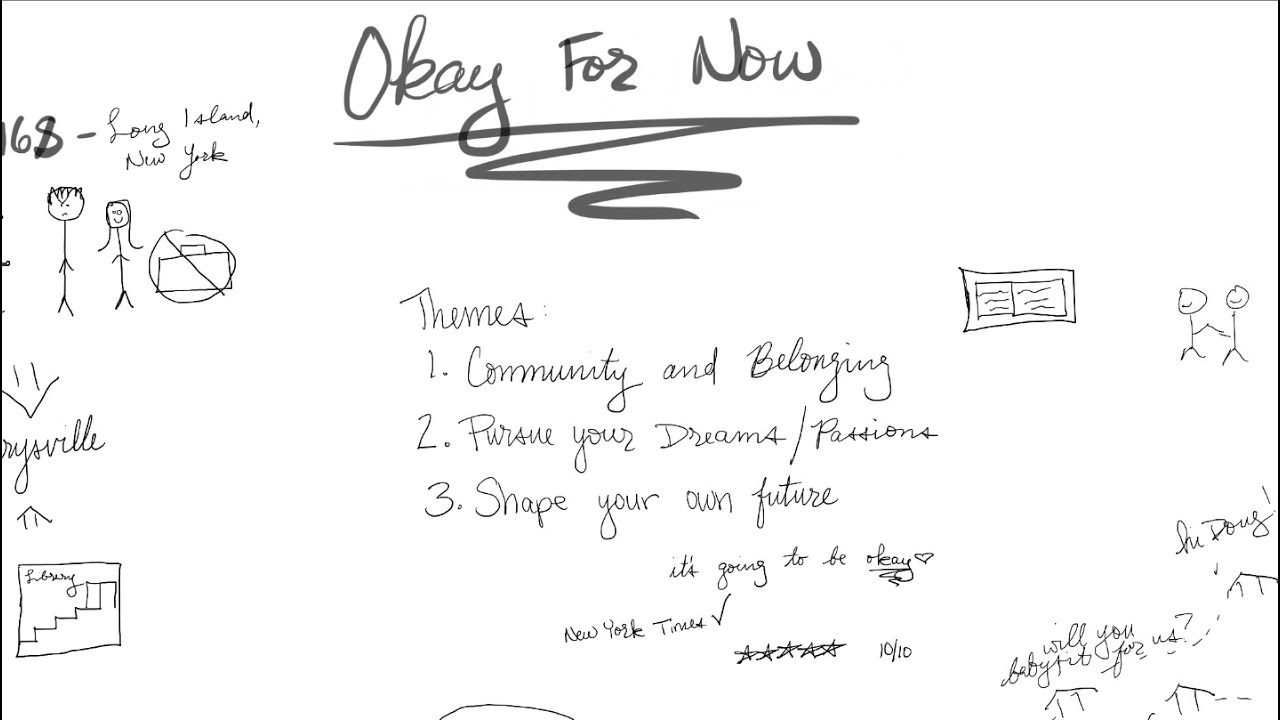 Okay For Now
168 - Long Island,
New York
Themes:
1. Community and Belonging
2. Pursue your Dreams/Passions
3. Shape your own future
rysville
it's going to be okay♡
Library
New York Times ✓
★★★★★ 10/10
hi Doug!
will you
babysit for us?